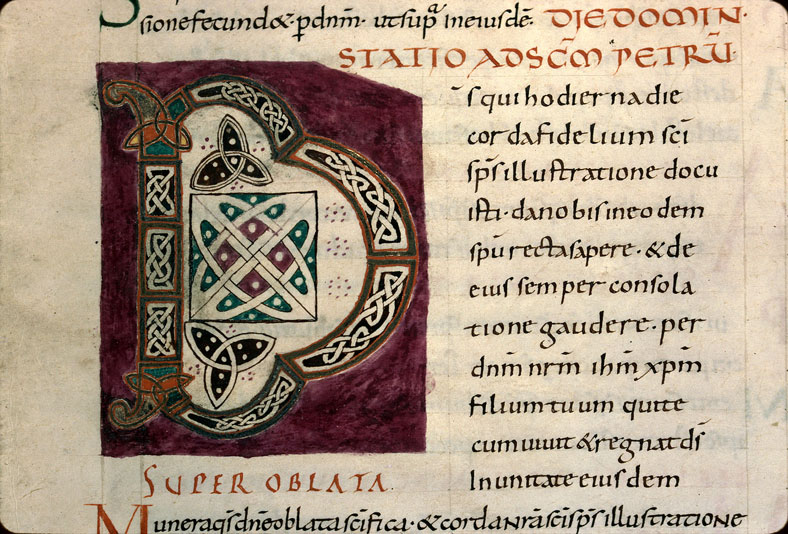 sione fecund& ꝑ dnm̄· ut supᵃ in eiusdē· DIE DOMIN·
STATIO AD SC̄M PETRŪ·
D̄S qui hodierna die
corda fidelium sc̄i
sp̄s illustratione docu
isti· da nobis in eodem
spū recta sapere· & de
eius semper consola
tione gaudere· per
dnm̄ nrm̄ ihm̄ xpm̄
filium tuum qui te
cum uiuit & regnat ds̄
In unitate eiusdem
SUPER OBLATA
Munera qs̄ dn̄e oblata sc̄ifica· & corda nr̄a sc̄i sp̄s illustratione